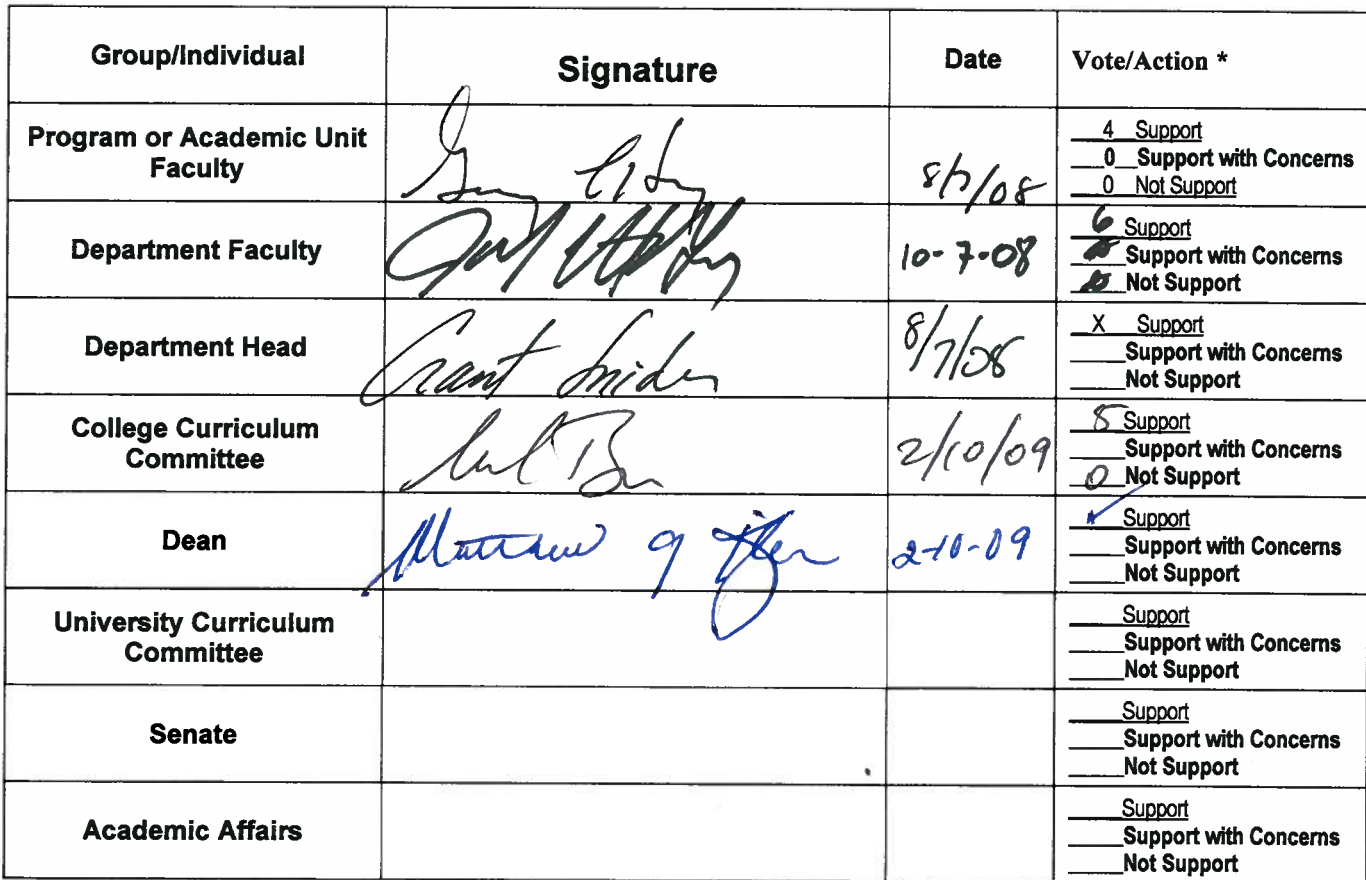 Group/Individual
Signature
Date
Vote/Action *
Program or Academic Unit
Faculty
8/7/08
4 Support
0 Support with Concerns
0 Not Support
Department Faculty
10-7-08
6 Support
Support with Concerns
Not Support
Department Head
Grant Snider
8/7/08
X Support
Support with Concerns
Not Support
College Curriculum
Committee
2/10/09
Support
Support with Concerns
0 Not Support
Dean
Matthew
2-10-09
Support
Support with Concerns
Not Support
University Curriculum
Committee
Support
Support with Concerns
Not Support
Senate
Support
Support with Concerns
Not Support
Academic Affairs
Support
Support with Concerns
Not Support